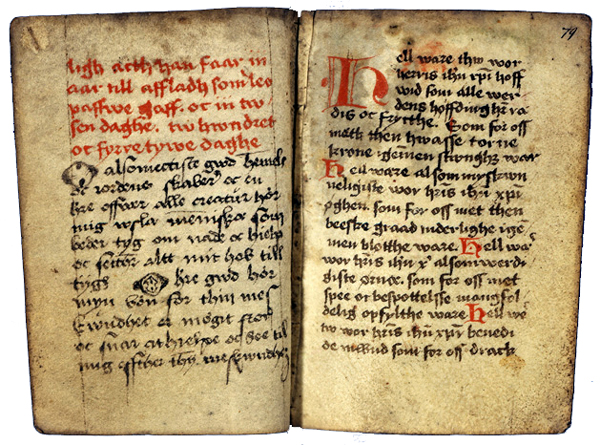 ligh ath han faar in
aar till affladh som leo
passwe gaff. oc in tw
sen daghe. tw hwndret
oc fyrretywe daghe
O alsomectiste gwd hemels
oc iordens skaber oc en
kre offwer alle creatur hør
mig wsla mēniske som
beder tyg om nade oc hielp
oc setter altt mit hob till
tygh O kre gwd hør
myn bøn for thin mes
kwndhet oc mögit stor
oc swar at hielpe oc see til
mig effther thin meskwndhet
79
Hell ware thw wor
herris ihū xpī hoff
wid som alle wer
dens hoffdinghr ræ
dis oc fryctthe. Som for oss
meth then hwasse torne
krone igēnen stwnghz war
Hell ware alsommyskwn
neligiste wor hr̄is ihū xpī
øghen. som for oss met then
beeske graad inderlighe ige
men bløtthe ware. Hell war
wor hr̄is ihū x̄ alsomwerdi
giste ørnæ. som for oss met
spee oc bespottelsse mangfol
delig opfylthe ware Hell we
tw wor hr̄is ihū xpī benedi
de mwnd som for oss drack